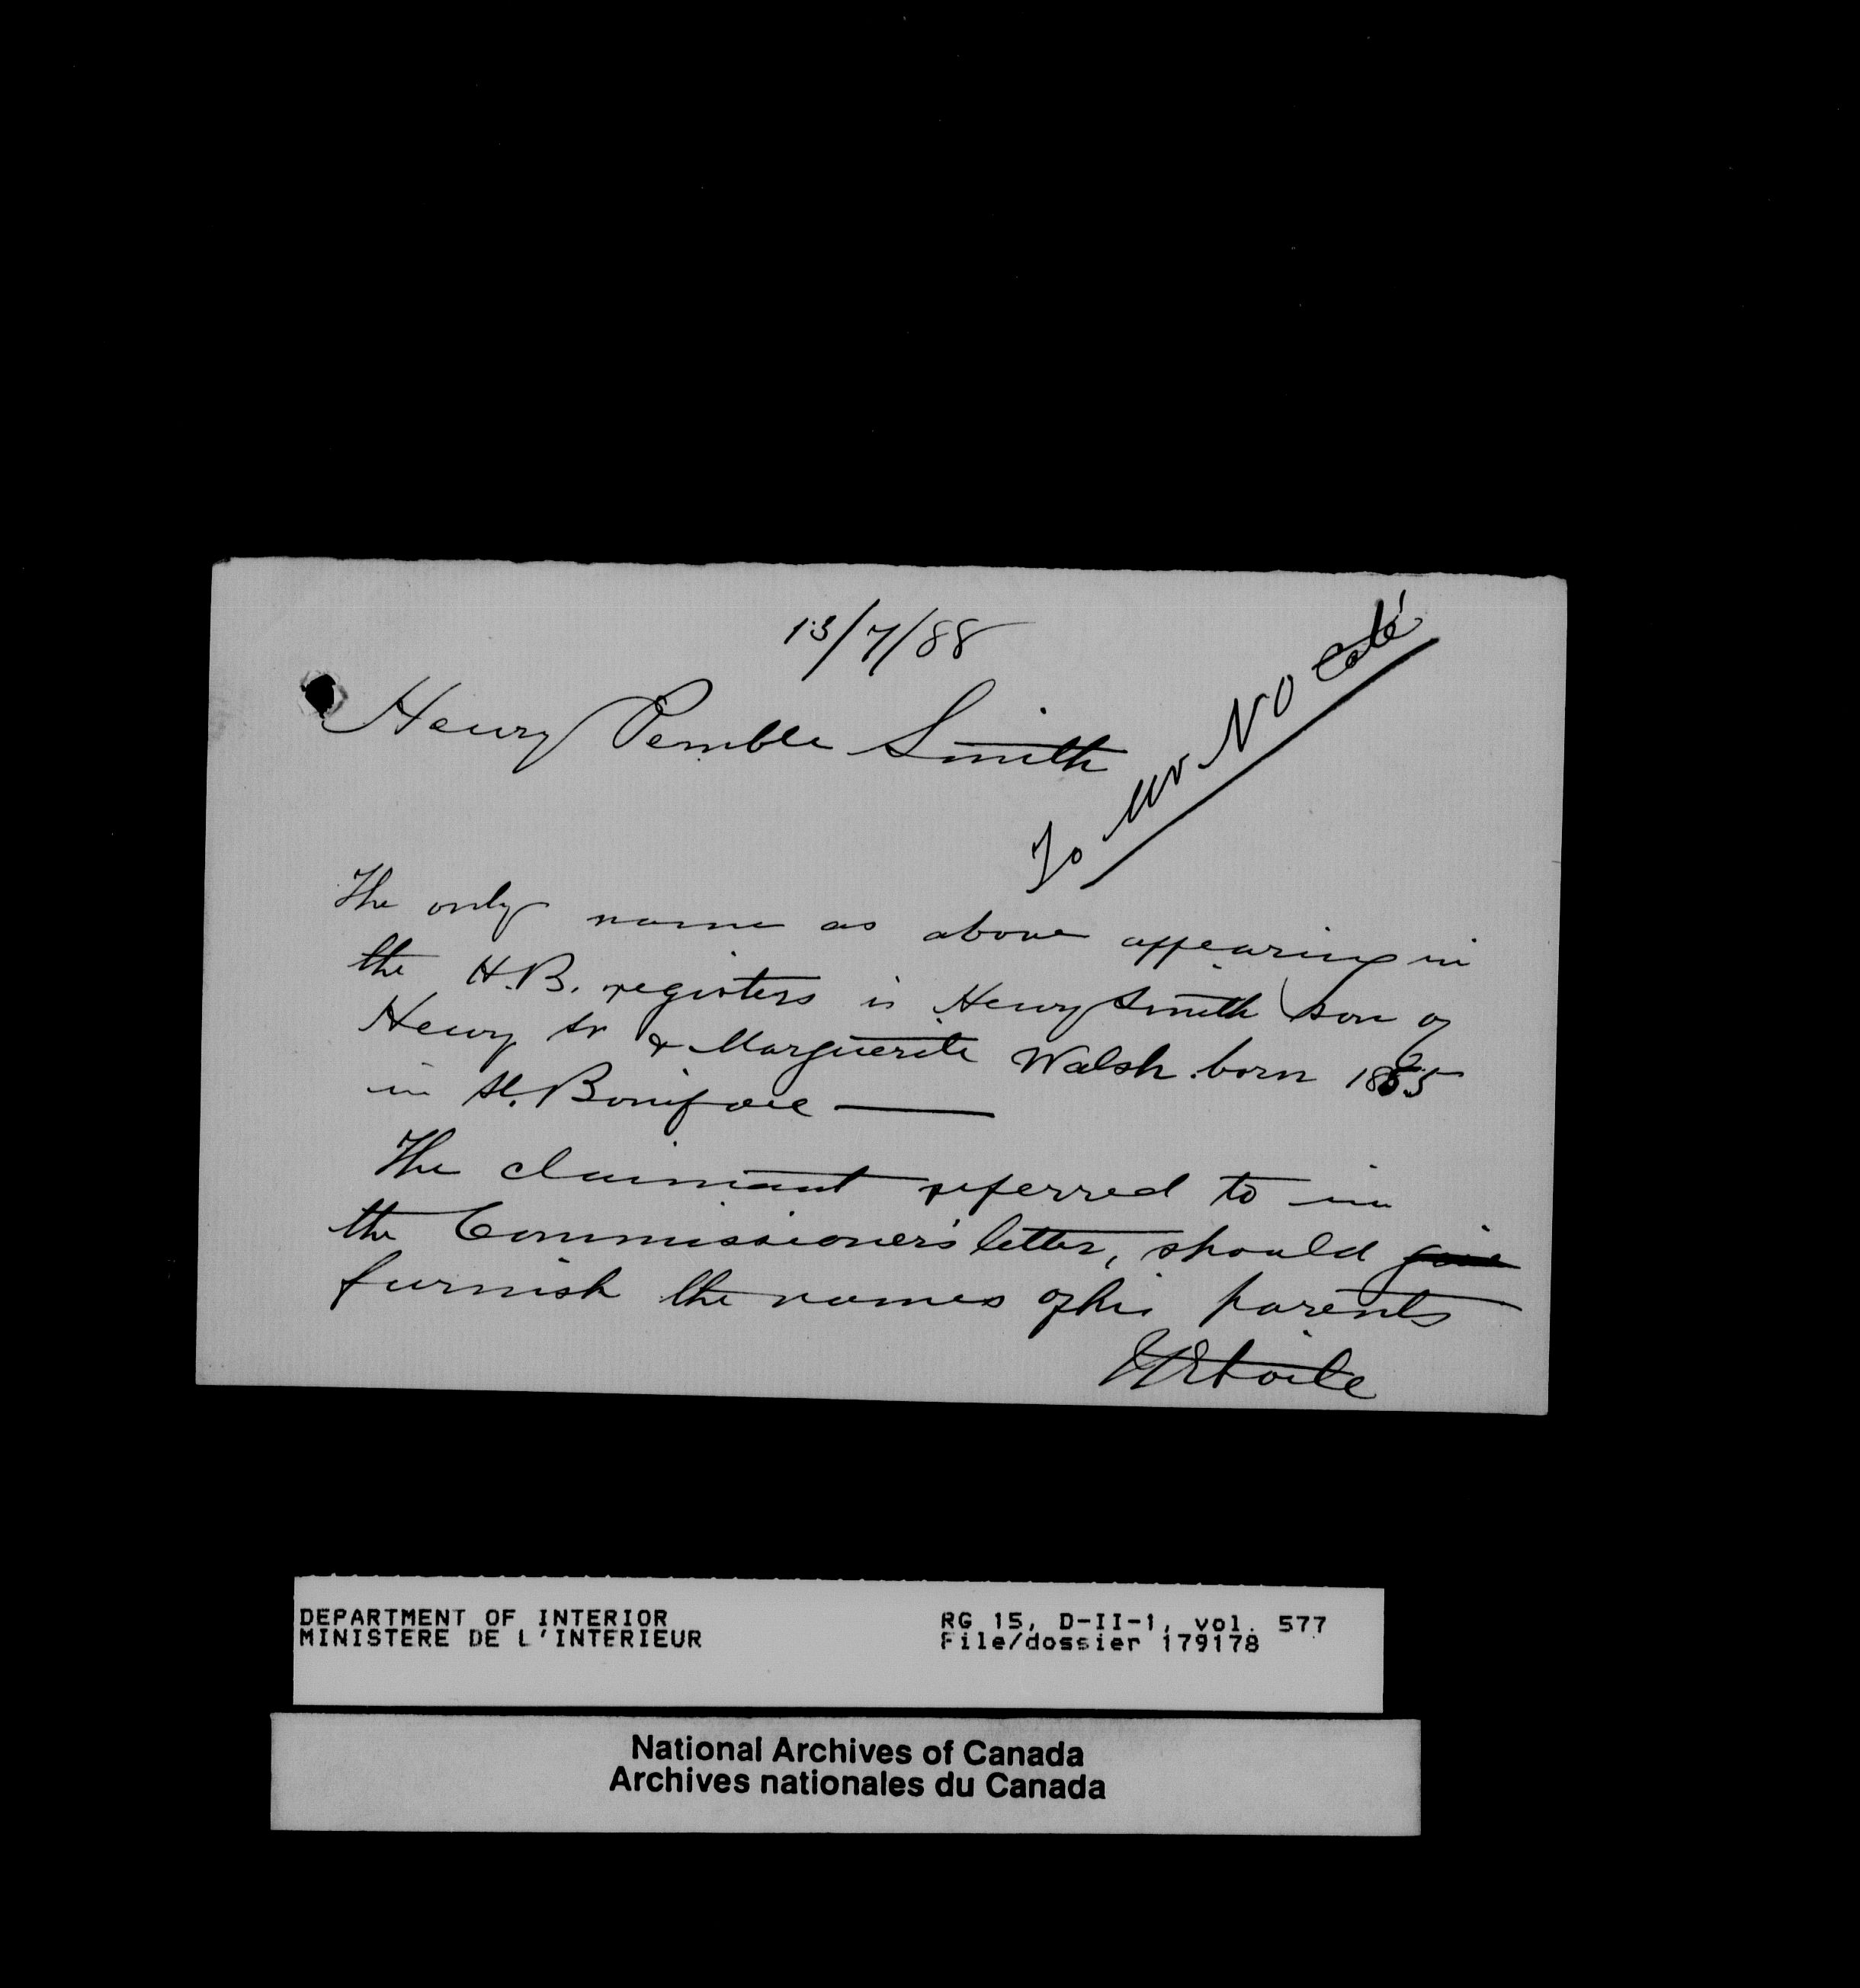 13/7/88
To Mr. N O Coté
Henry Pemble Smith
The only name as above appearing in
the H.B. registers is Henry Smith son of
Henry Sr & Marguerite Walsh. born 1865
in St. Boniface
The claimant referred to in
the Commissioner's letter, should give
furnish the names of his parents
DEPARTMENT OF INTERIOR
MINISTERE DE L'INTERIEUR
RG 15, D-II-1, vol. 577
File/dossier 179178
National Archives of Canada
Archives nationales du Canada